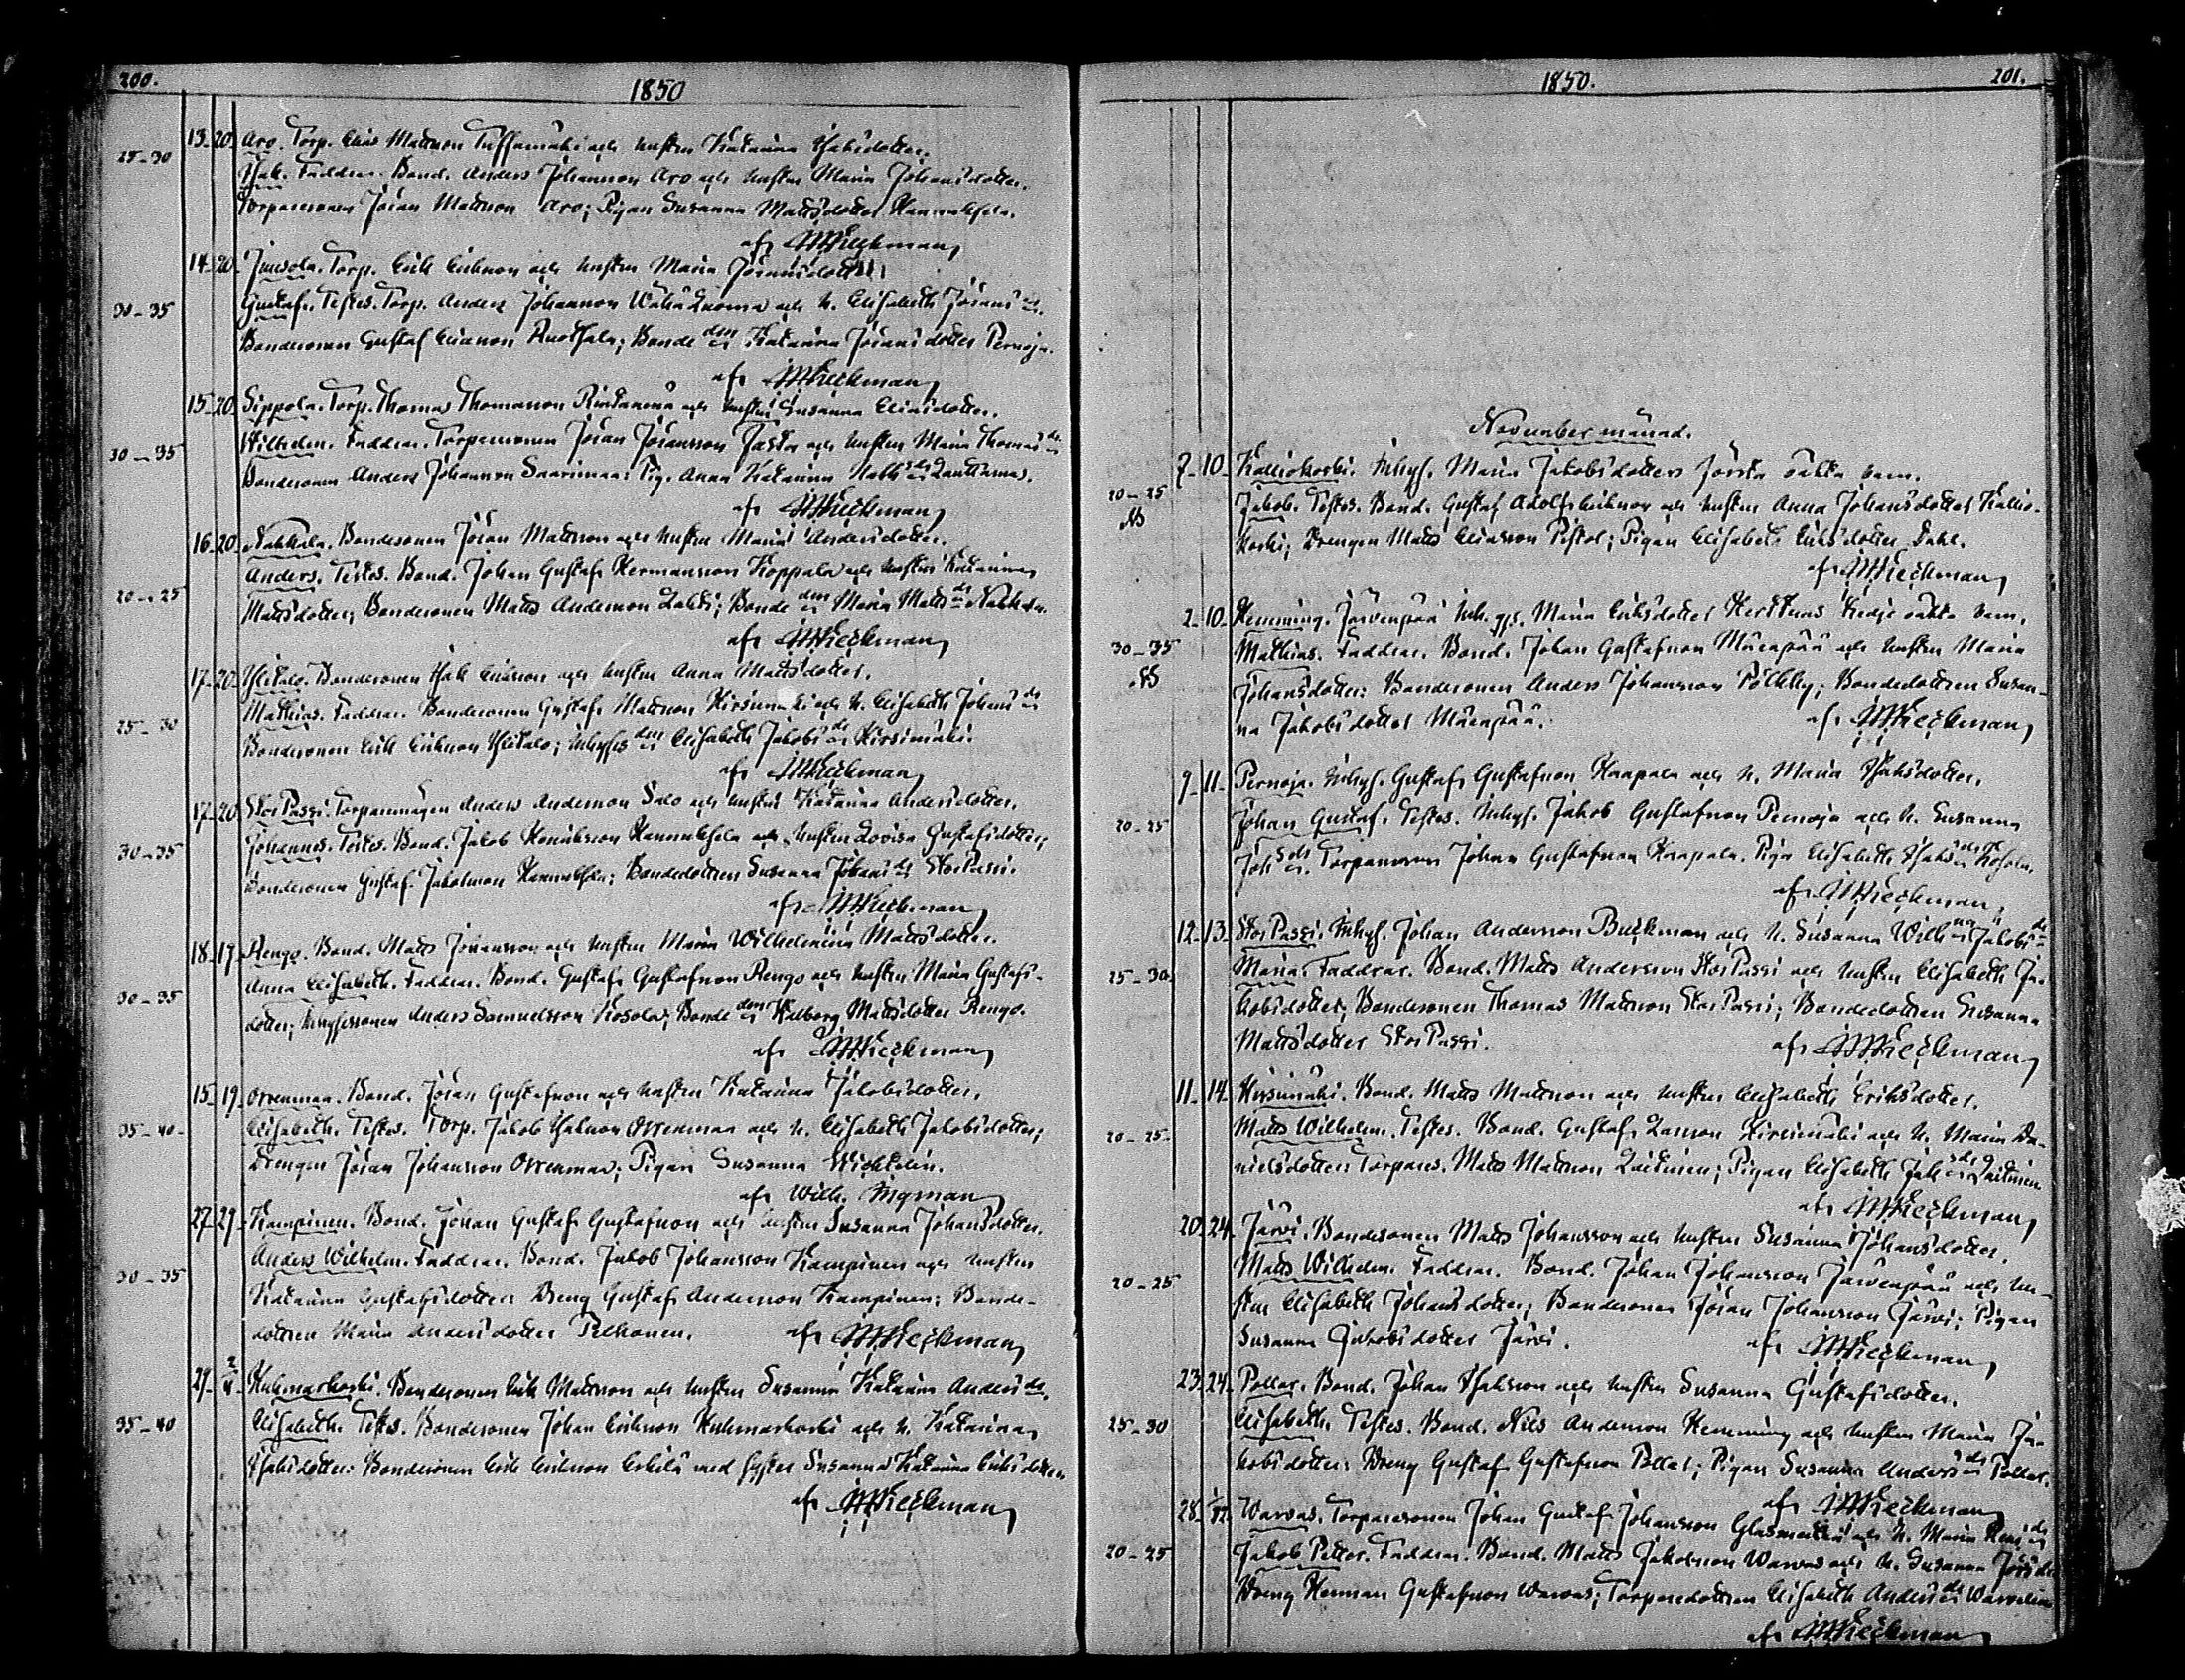 200.
1850
25-30
13. 20. Aro. Torp. Elias Mattsson Tuffamäki och hustru Katarina Isaksdotter.
Isak. Faddrar. Bond. Anders Johansson Aro och hustru Maria Johansdotter.
Torparesonen Jöran Mattsson Aro; Pigan Susanna Mattsdotter Hannuksela.
af
14. 20. Torp. Erik Eriksson och hustru Maria Jöransdotter
30-35
Gustaf. Testes. Torp. Anders Johansson och h. Elisabeth Jörans dr.
Bondesonen Gustaf Eliasson Ruotsala; Bonde den Katarina Jöransdotter Pernaja.
af
15. 20. Sippola. Torp. Thomas Thomasson Rintanen och hustru Susanna Eliasdotter.
30-35
Wilhelm. Faddrar. Torparesonen Jöran Jöransson och hustru Maria Thomas dr
Bondesonen Anders Johansson Saarimaa; Pig. Anna Katarina
af
16. 20. Nahkala. Bondesonen Jöran Mattsson och hustru Maria Andersdotter.
Anders. Testes. Bond. Johan Gustaf Hermansson Koppala och hustru Katarina
20-25
Mattsdotter; Bondesonen Matts Andersson Lahti; Bonde den Maria Matts dr Nahkala.
af
17. 20. Ylitalo. Bondesonen Isak Eriksson och hustru Anna Mattsdotter.
25-30
Mathias. Faddrar. Bondesonen Gustaf Mattsson Kirsimäki och h. Elisabeth Johans dr
Bondesonen Erik Eriksson Ylitalo; Inhyses den Elisabeth Jakobs dr Kirsimäki.
af
17. 20. Stor Passi. Torparemågen Anders Andersson Salo och hustru Katarina Andersdotter.
30-35
Johannes. Testes. Bond. Jakob Henriksson Hannuksela och hustru Lovisa Gustafsdotter;
Bondesonen Gustaf Jakobsson Hannuksela; Bondedottren Susanna Johans dr Stor Passi.
af
18. 17. Rengo. Bond. Matts Johansson och hustru Maria Wilhelmina Mattsdotter.
30-35
Anna Elisabeth. Faddrar. Bond. Gustaf Gustafsson Rengo och hustru Maria Gustafs-
dotter; Inhysessonen Anders Samuelsson Kosola; Bonde den Walborg Mattsdotter Rengo.
af
15. 19. Orrenmaa. Bond. Jöran Gustafsson och hustru Katarina Jakobsdotter.
35-40.
Elisabeth. Testes. Torp. Jakob Isaksson Orrenmaa och h. Elisabeth Jakobsdotter;
Drengen Jöran Johansson Orrenmaa; Pigan Susanna
af Wilh. Ingman
27. 29. Kampinen. Bond. Johan Gustaf Gustafsson och hustru Susanna Johansdotter.
Anders Wilhelm. Faddrar. Bond. Jakob Johansson Kampinen och hustru
30-35
Katarina Gustafsdotter; Dreng Gustaf Andersson Kampinen; Bonde-
dottren Maria Andersdotter Pelkonen. af
29. 2/11. Kuhmarkoski. Bondesonen Erik Mattsson och hustru Susanna Katarina Anders dr.
35-40
Elisabeth. Testes. Bondesonen Johan Eriksson Kuhmarkoski och h. Katarina
Isaksdotter; Bondesonen Erik Eriksson Erkilä med syster Susanna Katarina Eriksdotter
af
201.
1850.
November månad.
7. 10. Kalliokoski. Inhys. Maria Jakobsdotters första oäkta barn.
20-25
Jakob. Testes. Bond. Gustaf Adolf Eriksson och hustru Anna Johansdotter Kallio-
koski; Drengen Matts Eliasson Pistol; Pigan Elisabeth Eriksdotter Dahl.
af
2. 10. Hemming. Järvenpää Inh. pig. Maria Eriksdotter Herttuas tredje oäkta barn.
30-35
Mathias. Faddrar. Bond. Johan Gustafsson Mäenpää och hustru Maria
Johansdotter; Bondesonen Anders Johansson Pölkky; Bondedottren Susan-
na Jakobsdotter Mäenpää. af
9. 11. Pernaja. Inhys. Gustaf Gustafsson Haapala och h. Maria Isaksdotter.
20-25
Johan Gustaf. Testes. Inhys. Jakob Gustafsson Pernaja och h. Susanna
Joh dr. Torparesonen Johan Gustafsson Haapala. Pigan Elisabeth Isaks dr Kosola.
af
12. 13. Stor Passi. Inhys. Johan Andersson Buckman och h. Susanna Wilh na Jakobs dr
25-30.
Maria. Faddrar. Bond. Matts Andersson Stor Passi och hustru Elisabeth Ja-
kobsdotter; Bondesonen Thomas Mattsson Stor Passi; Bondedottren Susanna
Mattsdotter Stor Passi. af
11. 14. Kirsimäki. Bond. Matts Mattsson och hustru Elisabeth Eriksdotter.
20-25.
Matts Wilhelm. Testes. Bond. Gustaf Larsson Kirsimäki och h. Maria Da-
nielsdotter; Torpares. Matts Mattsson Laitinen; Pigan Elisabeth Isak dr Laitinen
af
20. 24. Järvi. Bondesonen Matts Johansson och hustru Susanna Johansdotter.
20-25
Matts Wilhelm. Faddrar. Bond. Johan Johansson Järvenpää och hu-
stru Elisabeth Johansdotter; Bondesonen Jöran Johansson Järvi; Pigan
Susanna Jakobsdotter Järvi. af
23. 24. Pollar. Bond. Johan Isaksson och hustru Susanna Gustafsdotter.
25-30
Elisabeth. Testes. Bond. Nils Andersson Hemming och hustru Maria Ja-
kobsdotter; Dreng Gustaf Gustafsson Pollar; Pigan Susanna Anders dr Pollar.
af
28. 1/12. Warvas. Torparesonen Johan Gustaf Johansson och h. Maria
20-25
Jakob Petter. Faddrar. Bond. Matts Jakobsson Warvas och h. Susanna
Dreng Herman Gustafsson Warvas; Torparedottren Elisabeth Anders dr
af